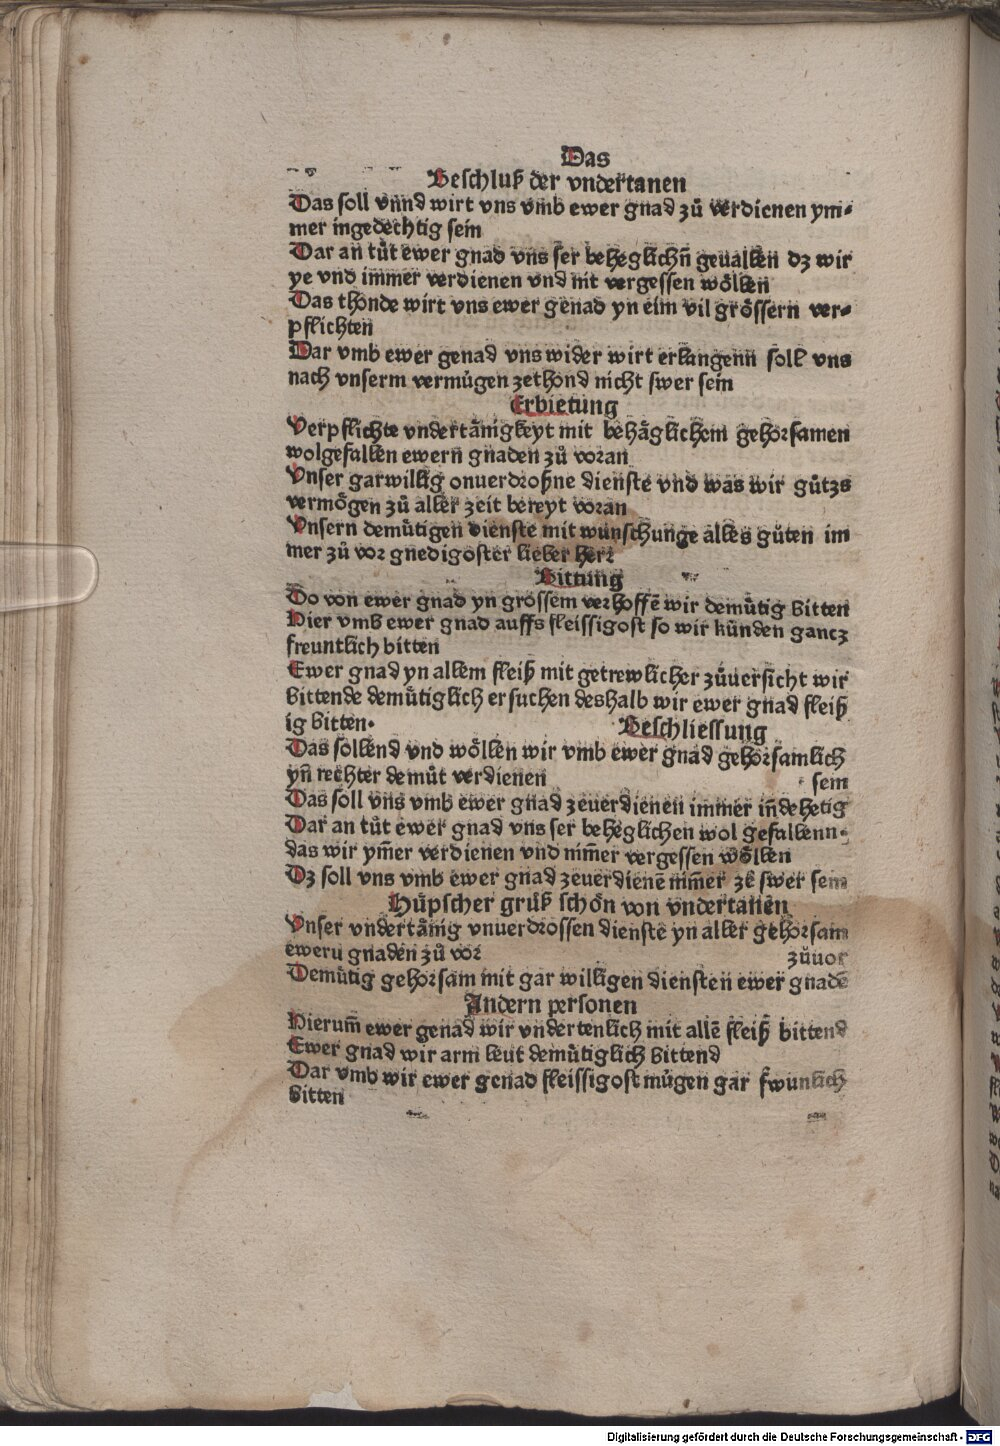 Das
Beschluß der vndertanen
Das soll vnnd wirt vns vmb ewer gnad zů verdienen ym⸗
mer ingedechtig sein
Dar an tůt ewer gnad vns ser beheglichn̄ geuallen dz wir
ye vnd immer verdienen vnd nit vergessen wöllen
Das thonde wirt vns ewer genad yn eim vil grössern ver⸗
pflichten
Dar vmb ewer genad vns wider wirt erlangenn soll vns
nach vnserm vermůgen zethond nicht swer sein
Erbietung
Verpflichte vndertänigkeyt mit behäglichem gehorsamen
wolgefallen ewern gnaden zů voran
Vnser garwillig onuerdroßne dienste vnd was wir gůtzs
vermögen zů aller zeit bereyt voran
Vnsern demůtigen dienste mit wunschunge alles gůten im
mer zů vor gnedigoster lieber herr
Bittung
Do von ewer gnad yn grossem verhoffē wir demůtig bitten
Hier vmb ewer gnad auffs fleissigost so wir kůnden gancz
freuntlich bitten
Ewer gnad yn allem fleiß mit getrewlicher zůuersicht wir
bittende demůtiglich ersuchen deshalb wir ewer gnad fleiß
ig bitten.
Beschliessung
Das sollend vnd wöllen wir vmb ewer gnad gehorsamlich
yn̄ rechter demůt verdienen
sein
Das soll vns vmb ewer gnad zeuerdienen immer in̄dehetig
Dar an tůt ewer gnad vns ser beheglichen wol gefallenn.
das wir ym̄er verdienen vnd nim̄er vergessen wöllen
Dz soll vns vmb ewer gnad zeuerdienē nim̄er zē swer sein
Hůpscher grůß schön von vndertanen
Vnser vndertänig vnuerdrossen dienste yn aller gehorsam
eweru gnaden zů vor
zůuor
Demůtig gehorsam mit gar willigen diensten ewer gnadē
Andern personen
Hierum̄ ewer genad wir vndertenlich mit allē fleiß bittend
Ewer gnad wir arm leut demůtiglich bittend
Dar vmb wir ewer genad fleissigost můgen gar
bitten
Digitalisierung gefördert durch die Deutsche Forschungsgemeinschaft - DFG